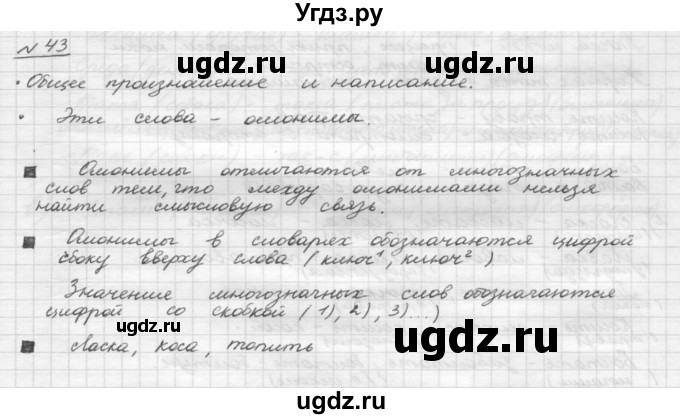 Угдз.ру
N 43
• Общее произношение и написание.
• Эти слова - омонимы.
Омонимы отличаются от многозначных
слов тем, что между омонимами нельзя
найти смысловую связь.
Омонимы в словарях обозначаются цифрой
сбоку вверху слова (ключ¹, ключ²)
Значение многозначных слов обозначаются
цифрой со скобкой (1), 2), 3)...)
Ласка, коса, топить
ugdz.ru
ugdz.ru
ugdz.ru
ugdz.ru
ugdz.ru
ugdz.ru
ugdz.ru
ugdz.ru